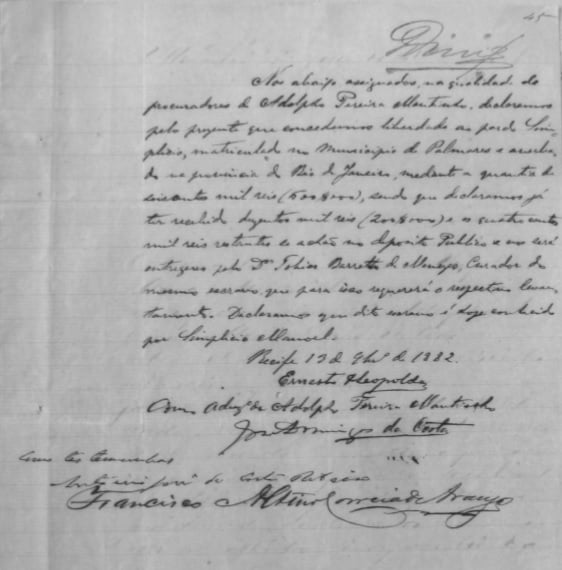 45
Nos abaixo assignados, na qualidade de
procuradores de Adolpho Pereira declaramos
pelo presente que concedemos liberdade ao pardo Sim-
plicio, matriculado no Municipio de Palmares e averba-
do na provincia do Rio de Janeiro, mediante a quantia de
seiscentos mil reis (600$000), sendo que declaramos já
ter recebido duzentos mil reis (200$000) e os quatrocentos
mil reis restantes se achão no deposito Publico e nos será
entregues pelo Dr. Tobias Barretto de Menezes, Curador do
mesmo escravo, que para isso requererá o respectivo levan-
tamento. Declaramos que dito escravo é hoje conhecido
por Simplicio Manoel.
Recife 13 de 9bro de 1882.
Ernesto &Leopoldo
Como de Adolpho Pereira
José Domingos da Costa
Como testemunhas
Antonio José da Costa
Francisco Altino Correia de Araujo